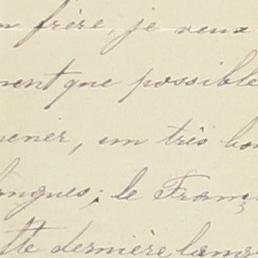 n frère, je veux
ment que possible
mener, un très bon
langues; le Franç
tte dernière lang